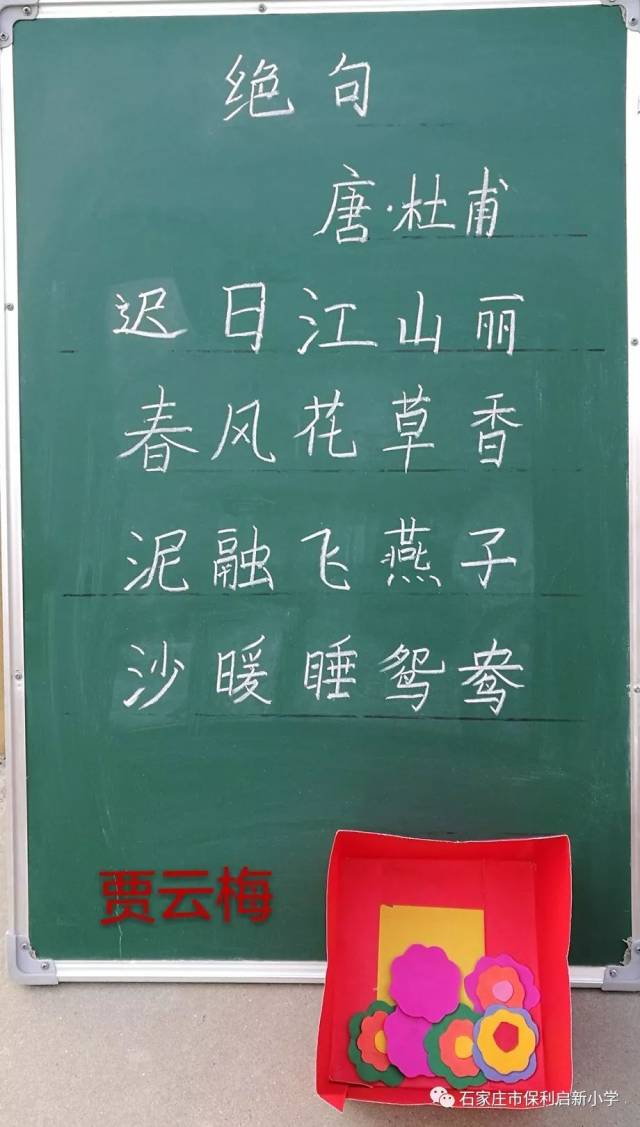 绝句
唐·杜甫
迟日江山丽
春风花草香
泥融飞燕子
沙暖睡鸳鸯
贾云梅
石家庄市保利启新小学